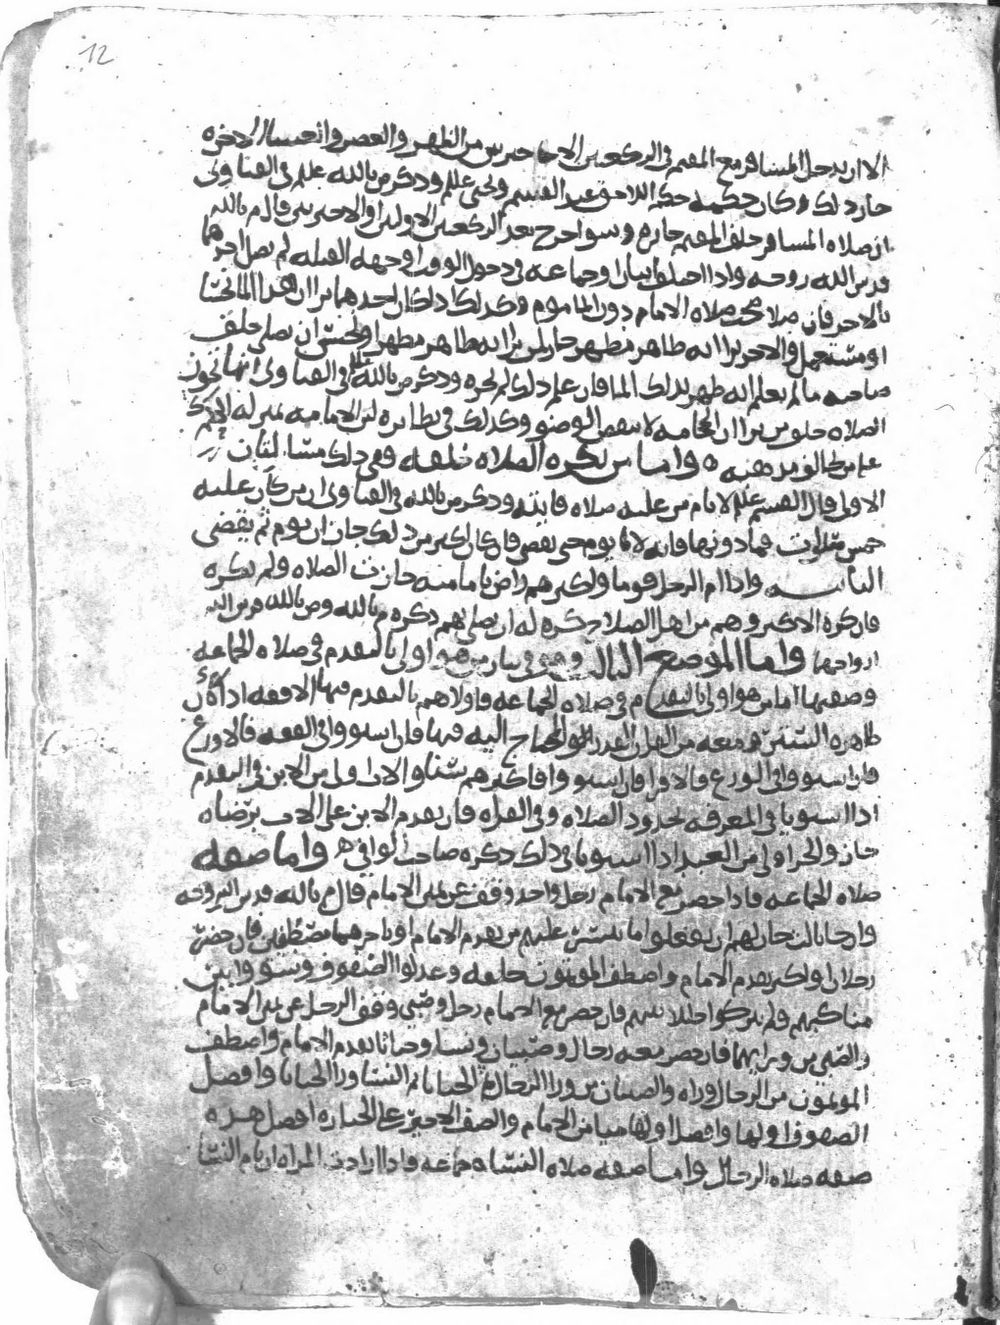 12
الا ان يدخل المسافر مع المقيم في الركعتين الاخيرتين من الظهر والعصر والعشا الاخره
جاز ذلك وكان حكمه حكم اللاحق عند القسم ويحيى عليلم وذكر م بالله عليلم في الفتاوى
ان صلاه المسافر خلف المقيم جائزه وسوا خرج بعد الركعتين الاولتين او الاخيرتين قال م بالله
قدس الله روحه واذا اختلف اثنان او جماعه في دخول الوقت او جهه القبله لم يصل احدهما
بالاخر فان صلا صحت صلاه الامام دون الماموم وكذلك اذا كان احدهما يرا ان هذا الما نجسا
او مستعمل والاخر يرا انه طاهر مطهر جاز لمن يرا انه طاهر مطهر او نجس ان يصلي خلف
صاحبه ما لم يعلم انه تطهر بذلك الما فان علم ذلك لم يجزه وذكر م بالله في الفتاوى انها تجوز
الصلاه خلف من يرا ان الحجامه لا تنقض الوضو وكذلك في نظائره لان الامامه بمنزله الحكم
على من يخالف مذهبه ه واما من تكره الصلاه خلفه ففي ذلك مسئلتان
الاولى قال القسم عليلم لا يام من عليه صلاه فايته وذكر م بالله في الفتاوى ان من كان عليه
خمس صلوات فما دونها فانه لا يام حتى يقضي فان كان اكثر من ذلك جاز ان يوم ثم يقضي
الثانيه واذا ام الرجل قوما واكثرهم راض بامامته جازت الصلاه ولم تكره
فان كره الاكثر وهم من اهل الصلاح كره له ان يصلي بهم ذكره م بالله وص بالله قدس الله
ارواحهما واما الموضع الثالث وهو في بيان من هو اولى بالتقدم في صلاه الجماعه
وصفتها اما من هو اولى بالتقدم في صلاه الجماعه فاولاهم بالتقدم فيها الافقه اذا كان
ظاهره الستر ومعه من القران القدر الذي يحتاج اليه فيها فان استووا في الفقه فالاورع
فان استووا في الورع فالاقرا فان استووا فاكبرهم سنا والاب اولى من الابن في التقدم
اذا استويا في المعرفه لحدود الصلاه وفي القراه فان تقدم الابن على الاب برضاه
جاز والحر اولى من العبد اذا استويا في ذلك ذكره صاحب الوافي ه واما صفه
صلاه الجماعه فاذا حضر مع الامام رجل واحد وقف عن يمين الامام قال م بالله قدس الله روحه
وان جا ثالث جاز لهم ان يفعلوا ما تيسر عليهم من تقدم الامام او تاخرهما مصطفين فان حضر
رجلان او اكثر تقدم الامام واصطف الموتمون خلفه وعدلوا الصفوف وسووا بين
مناكبهم ولم يتركوا خللا بينهم فان حضر مع الامام رجل وصبي وقف الرجل عن يمين الامام
والصبي من ورايهما فان حضر معه رجال وصبيان ونسا وخناثا تقدم الامام واصطف
الموتمون من الرجال وراه والصبيان من ورا الرجال ثم الخناثا ثم النسا ورا الخناثا وافضل
الصفوف اولها وافضل اولها ميامن الامام والصف الاخير على الجنازه افضل هذه
صفه صلاه الرجال واما صفه صلاه النسا جماعه فاذا ارادت المراه ان تام النسا